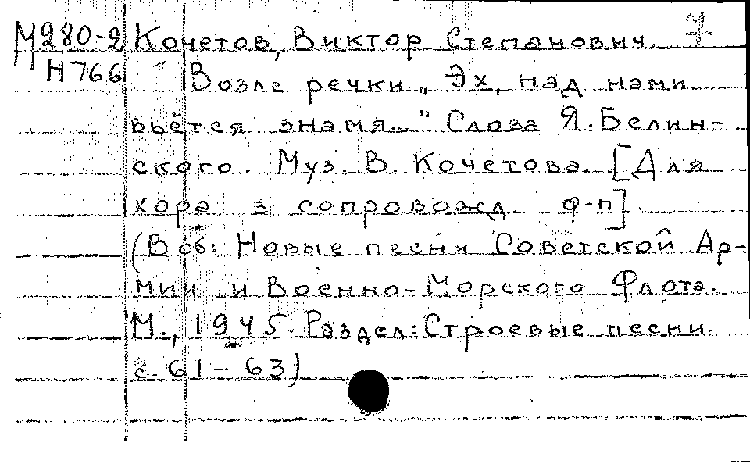 М280-2 Кочетов, Виктор Степанович. 7
Н766 Возле речки „Эх, над нами
вьётся знамя..." Слова Я. Белин-
ского. Муз. В. Кочетова. [Для
хора з сопровожд. ф-п]
(В сб: Новые песни Советской Ар-
мии и Военно-Морского Флота.
М., 1945. Раздел: Строевые песни
с. 61-63)